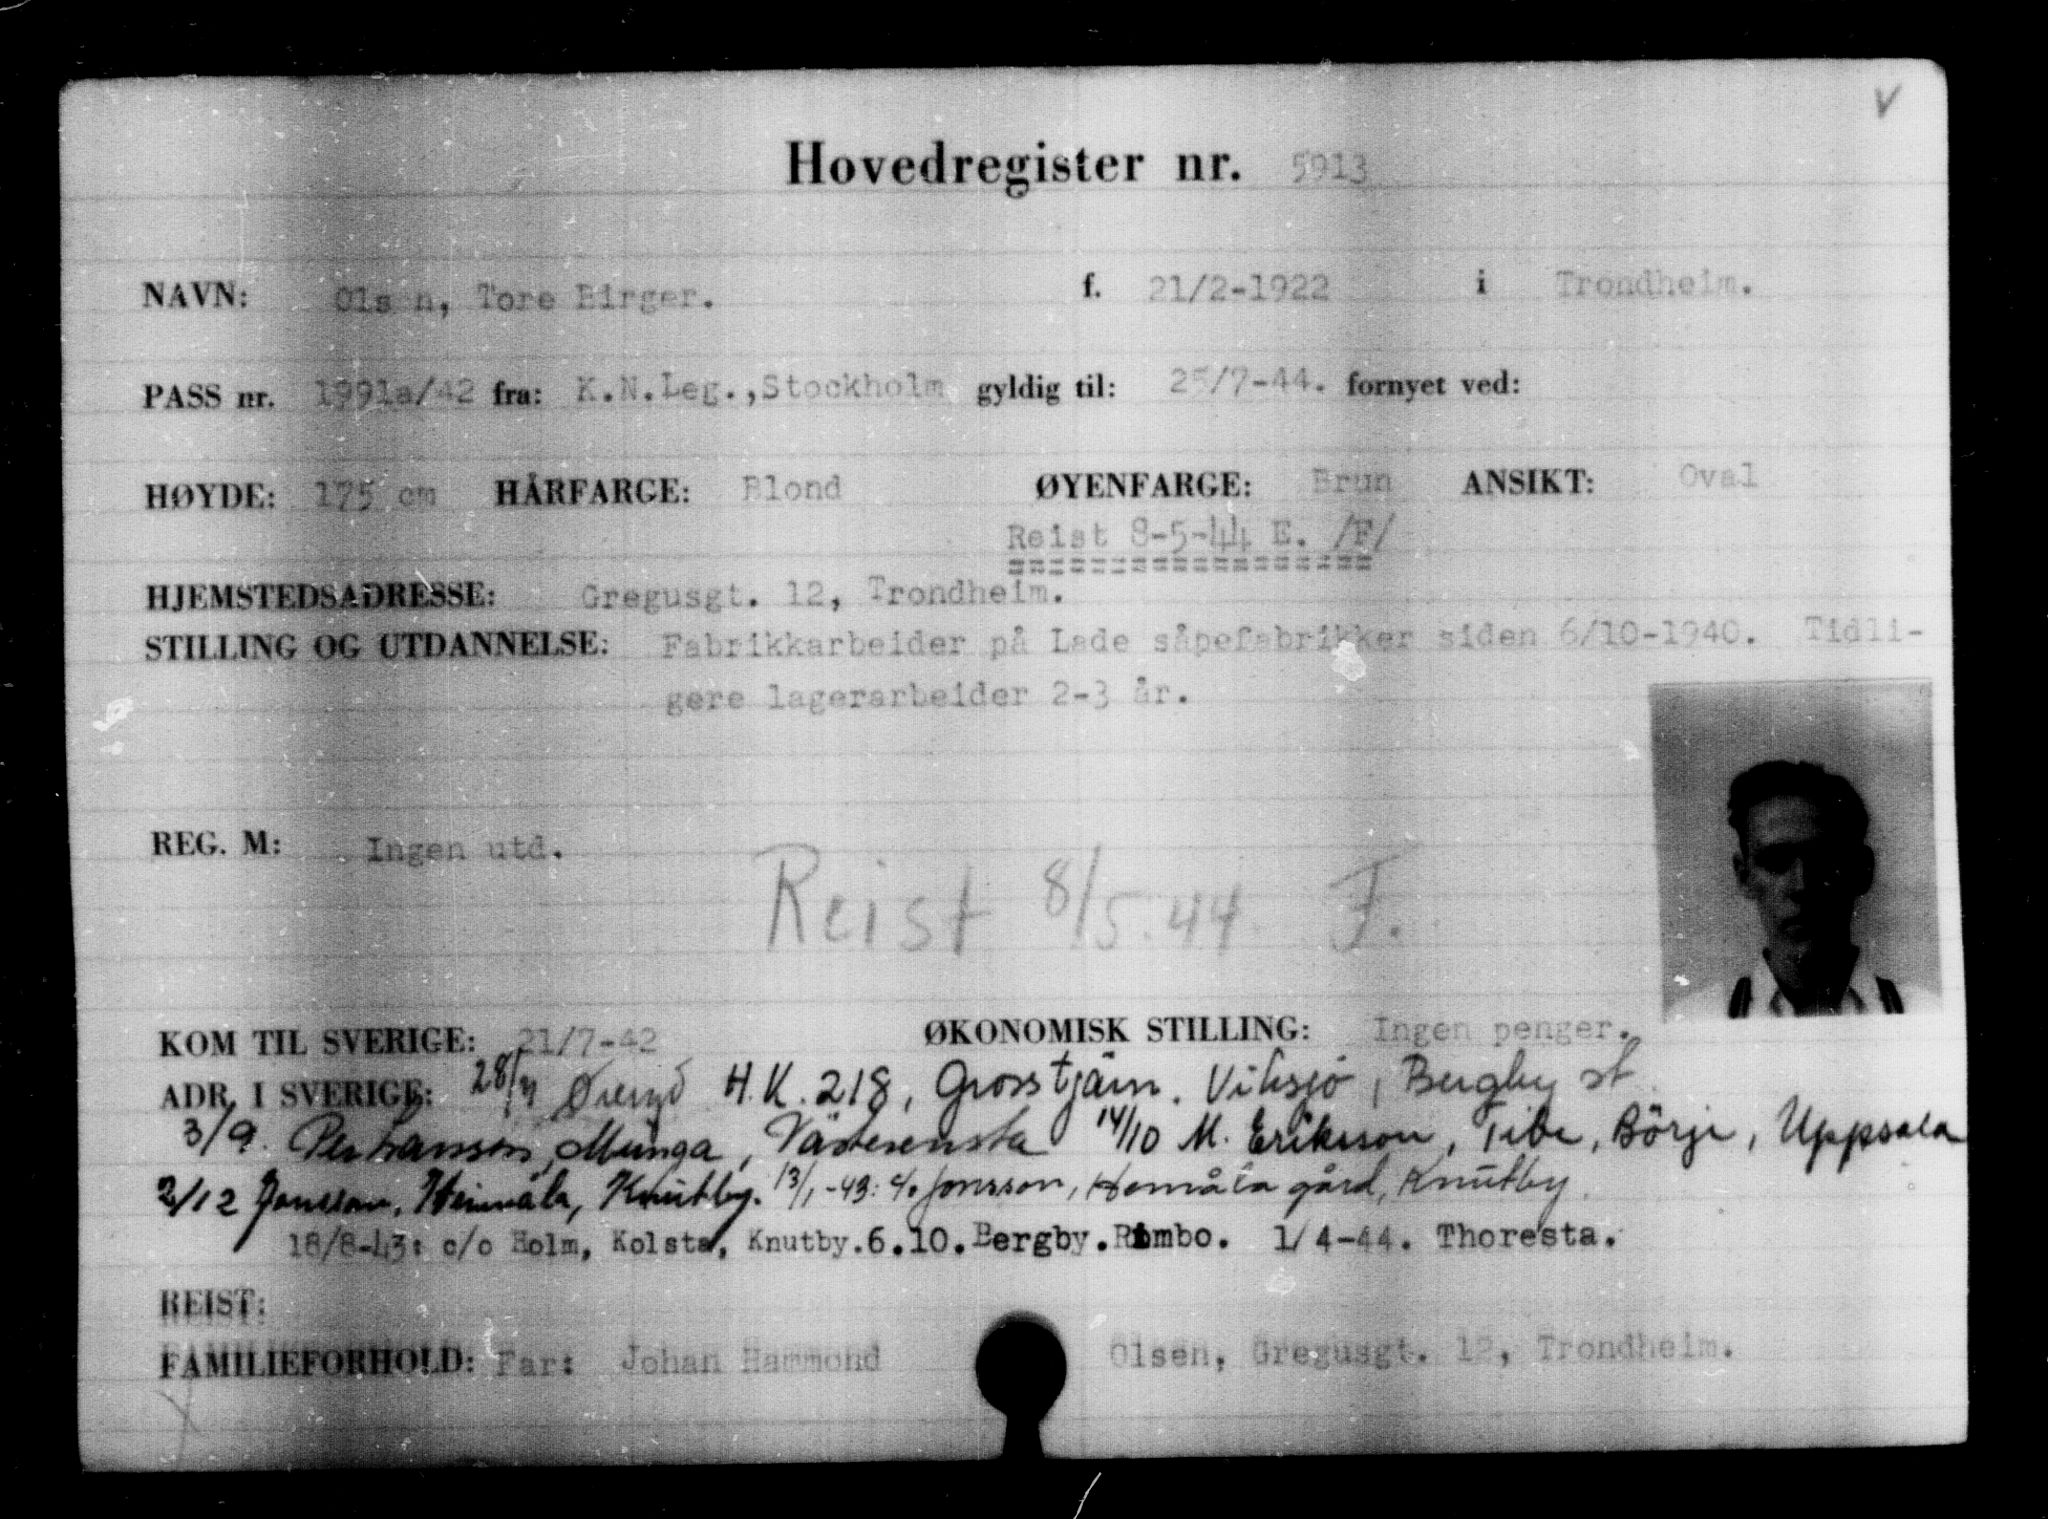 V
Hovedregister nr. 5913
NAVN: Olsen, Tore Birger. f. 21/2-1922 i Trondheim.
PASS nr. 1991a/42 fra: K.N.Leg.,Stockholm gyldig til: 25/7-44. fornyet ved:
HØYDE: 175 cm HÅRFARGE: Blond ØYENFARGE: Brun ANSIKT: Oval
Reist 8-5-44 E. /F/
==================
HJEMSTEDSADRESSE: Gregusgt. 12, Trondheim.
STILLING OG UTDANNELSE: Fabrikkarbeider på Lade såpefabrikker siden 6/10-1940. Tidli-
gere lagerarbeider 2-3 år.
REG. M: Ingen utd.
Reist 8/5.44 F.
KOM TIL SVERIGE: 21/7-42 ØKONOMISK STILLING: Ingen penger.
ADR. I SVERIGE: H.K. 218, Grosstjärn. Viksjö, Bergby st
3/9. Munga, 14/10 M. Eriksson, Tibe, Börje, Uppsala
2/12 Jonsson, Knutby. 13/1-43: Jonsson, Hemåla gård, Knutby.
18/8-43: c/o Holm, Kolsta, Knutby.6.10.Bergby.Rimbo. 1/4-44. Thoresta.
REIST:
FAMILIEFORHOLD: Far: Johan Hammond Olsen, Gregusgt. 12, Trondheim.